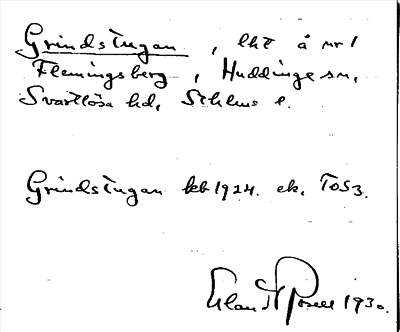 Grindstugan, lht å nr 1
Flemingsberg, Huddinge sn,
Svartlösa hd, Sthlms l.
Grindstugan kb 1924. ek. To53.
Erland Rosell 1930.